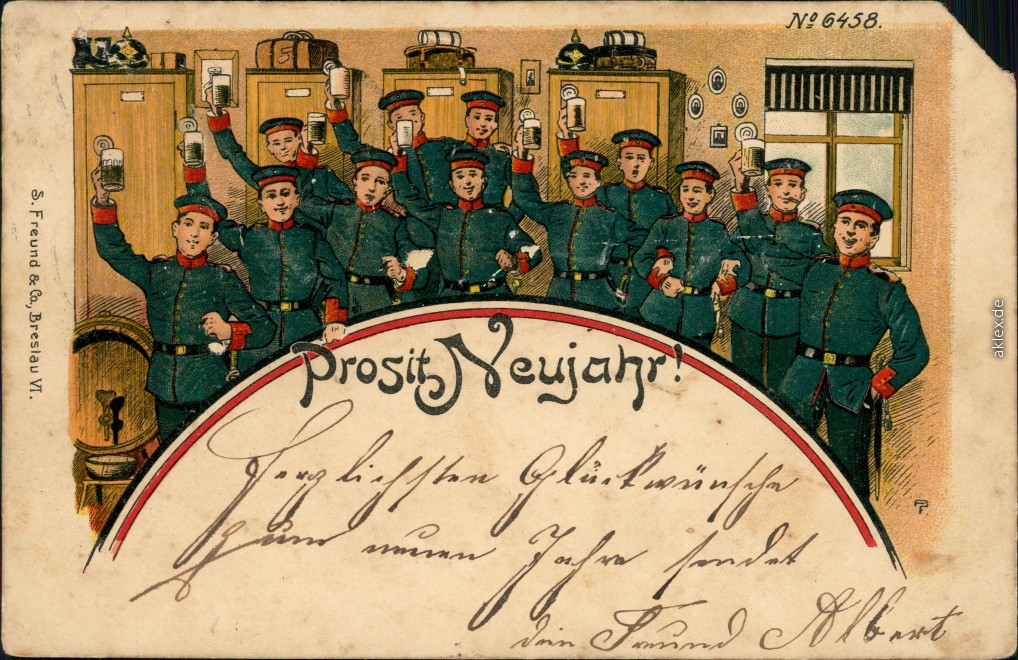 No 6458.
S. Freund & Co, Breslau VI.
Prosit Neujahr!
Herzlichsten Glückwünsche
zum neuen Jahre sendet
dein Freund Albert
aklex.de